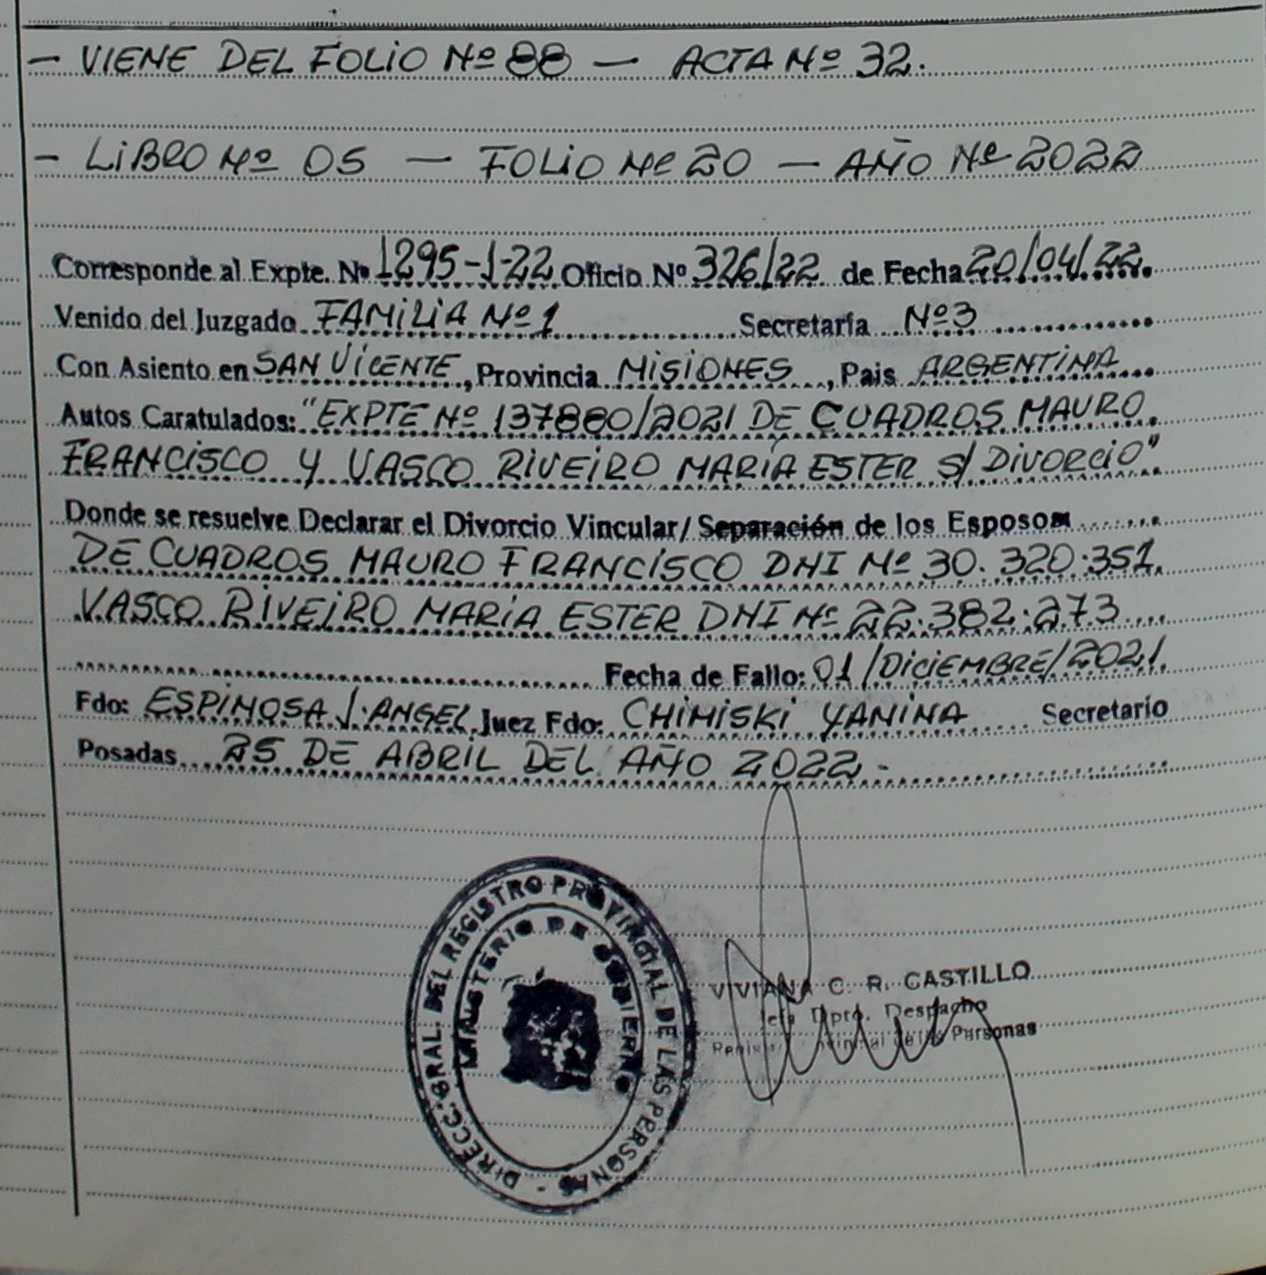 - VIENE DEL FOLIO Nº 88 - ACTA Nº 32.
- LIBRO Nº 05 - FOLIO Nº 20 - AÑO Nº 2022
Corresponde al Expte. Nº 1295-J-22 Oficio Nº 326/22 de Fecha 20/04/22.
Venido del Juzgado FAMILIA Nº 1 Secretaría Nº 3
Con Asiento en SAN VICENTE, Provincia MISIONES, Pais ARGENTINA
Autos Caratulados: "EXPTE Nº 137880/2021 DE CUADROS MAURO
FRANCISCO Y VASCO RIVEIRO MARIA ESTER S/ DIVORCIO"
Donde se resuelve Declarar el Divorcio Vincular/Separación de los Esposos
DE CUADROS MAURO FRANCISCO DNI Nº 30.320.351.
VASCO RIVEIRO MARIA ESTER DNI Nº 22.382.273
Fecha de Fallo: 01/DICIEMBRE/2021.
Fdo: ESPINOSA J. ANGEL Juez Fdo: CHIMISKI YANINA Secretario
Posadas 25 DE ABRIL DEL AÑO 2022-
DIRECC. GRAL. DEL REGISTRO PROVINCIAL DE LAS PERSONAS -
MINISTERIO DE GOBIERNO
VIVIANA C. R. CASTILLO
Jefa Dpto. Despacho
de las Personas